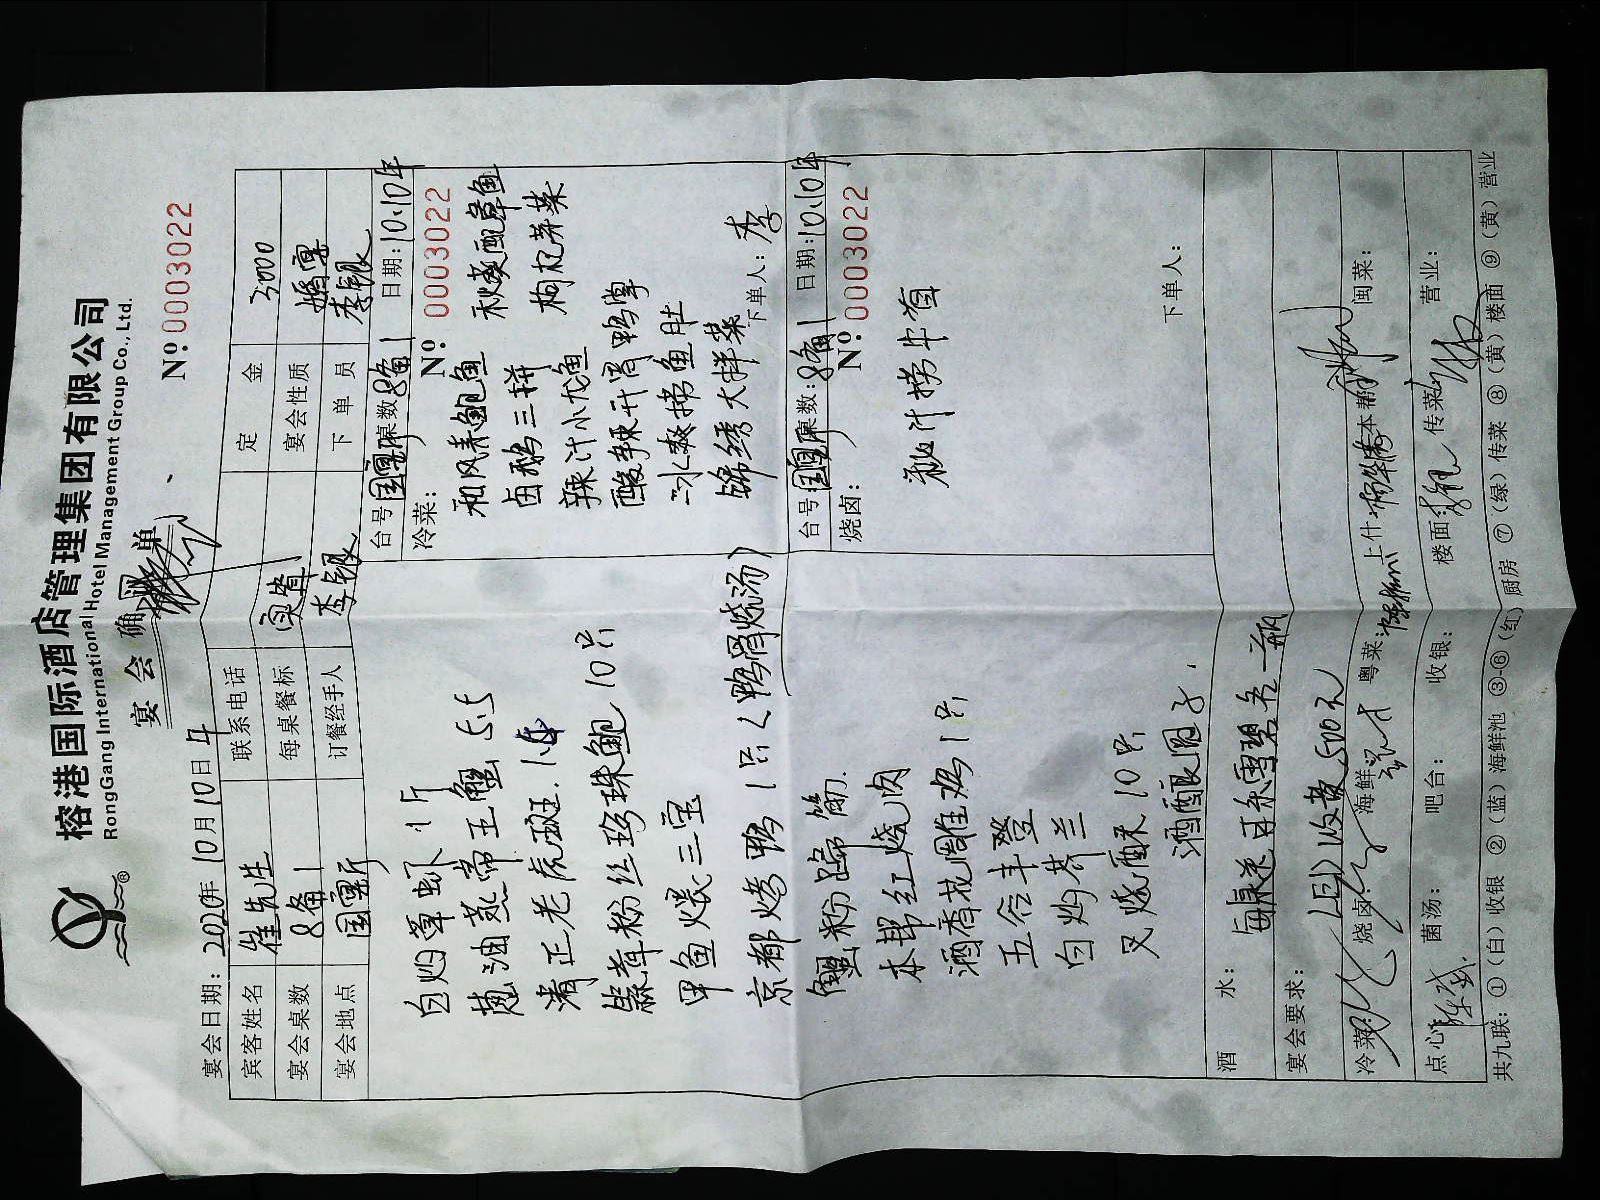 榕港国际酒店管理集团有限公司
RongGang International Hotel Management Group Co., Ltd.
宴会确单
№0003022
宴会日期：2020年10月10日午
宾客姓名 崔先生 联系电话 定金 3000
宴会桌数 8备1 每桌餐标 宴会性质 婚宴
宴会地点 国宴厅 订餐经手人 李银 下单员 李银
白灼草虾1斤
葱油燕帝王蟹5.5
清正老虎斑.1条
蒜茸粉丝珍珠鲍10只
甲鱼煨三宝
京都烤鸭1只(鸭骨烧汤)
蟹粉蹄筋.
本帮红烧肉
酒香花雕鸡1只
五谷丰登
白灼芥兰
叉烧酥10只
酒酿圆子.
台号 国宴厅 桌数：8备1 日期：10.10午
冷菜： №0003022
和风春鲍鱼
秋葵配章鱼
卤鹅三拼
枸杞荠菜
辣汁小龙鱼
酸辣开胃鸭掌
冰爽捞鱼肚
锦绣大拌菜
下单人：李
台号 国宴厅 桌数：8备1 日期：10.10午
烧卤： №0003022
秘汁捞牛
下单人：
酒水： 每桌送可乐雪碧各一瓶
宴会要求： LED收费500元
冷菜： 烧卤： 海鲜 粤菜： 上什： 本帮 闽菜：
点心 菌汤： 吧台： 收银： 楼面： 传菜 营业：
共九联：①（白）收银 ②（蓝）海鲜池 ③-⑥（红）厨房 ⑦（绿）传菜 ⑧（黄）楼面 ⑨（黄）营业